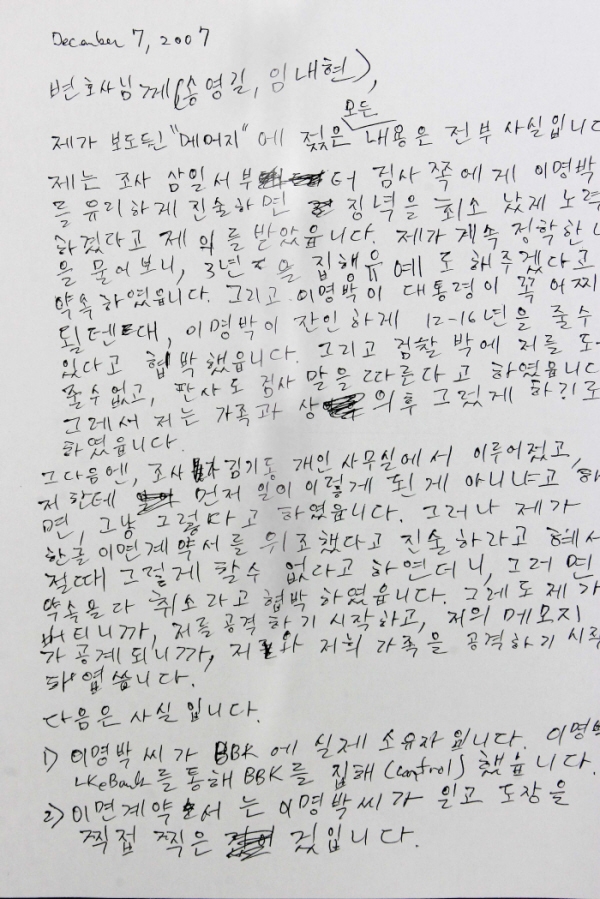 December 7, 2007
변호사님께(송영길, 임내현),
모든
제가 보도된 "메머지"에 젔은 내용은 전부 사실입니다
제는 조사 삼일서부 터 검사 쪽에게 이명박
를 유리하게 진술하면 징벽을 최소 낫제 노력
하겠다고 제의를 받았읍니다. 제가 계속 정학한
을 물어보니, 3년 을 집행유예도 해주겠다고
약속하였읍니다. 그리고 이명박이 대통령이 꼭 어찌
될텐데, 이명박이 잔인하게 12-16년을 줄수
있다고 협박했읍니다. 그리고 검찰 박에 저를 도
줄수없고, 판사도 검사 말을 따른다고 하였읍니다
그레서 저는 가족과 상 의후 그렇게 하기로
하였읍니다.
그다음엔, 조사 김기동 개인 사무실에서 이루어젔고,
저한테 먼저 일이 이렇게 된게 아니냐고 하
면, 그냥 그렇다고 하였읍니다. 그러나 제가
한글 이면계약서를 위조했다고 진술하라고 헤서
절때 그렇게 할수 없다고 하면더니, 그러면
약속을 다 취소라고 협박하였읍니다. 그레도 제가
버티니까, 저를 공격하기 시작하고, 저의 메모지
가 공게되니까, 저와 저희 가족을 공격하기 시작
하엽씁니다.
다음은 사실입니다.
1) 이명박씨가 BBK에 실제 소유자입니다. 이명박
LKeBank를 통해 BBK를 집해(control)했읍니다.
2) 이면계약서는 이명박씨가 읽고 도장을
찍접 찍은 것입니다.